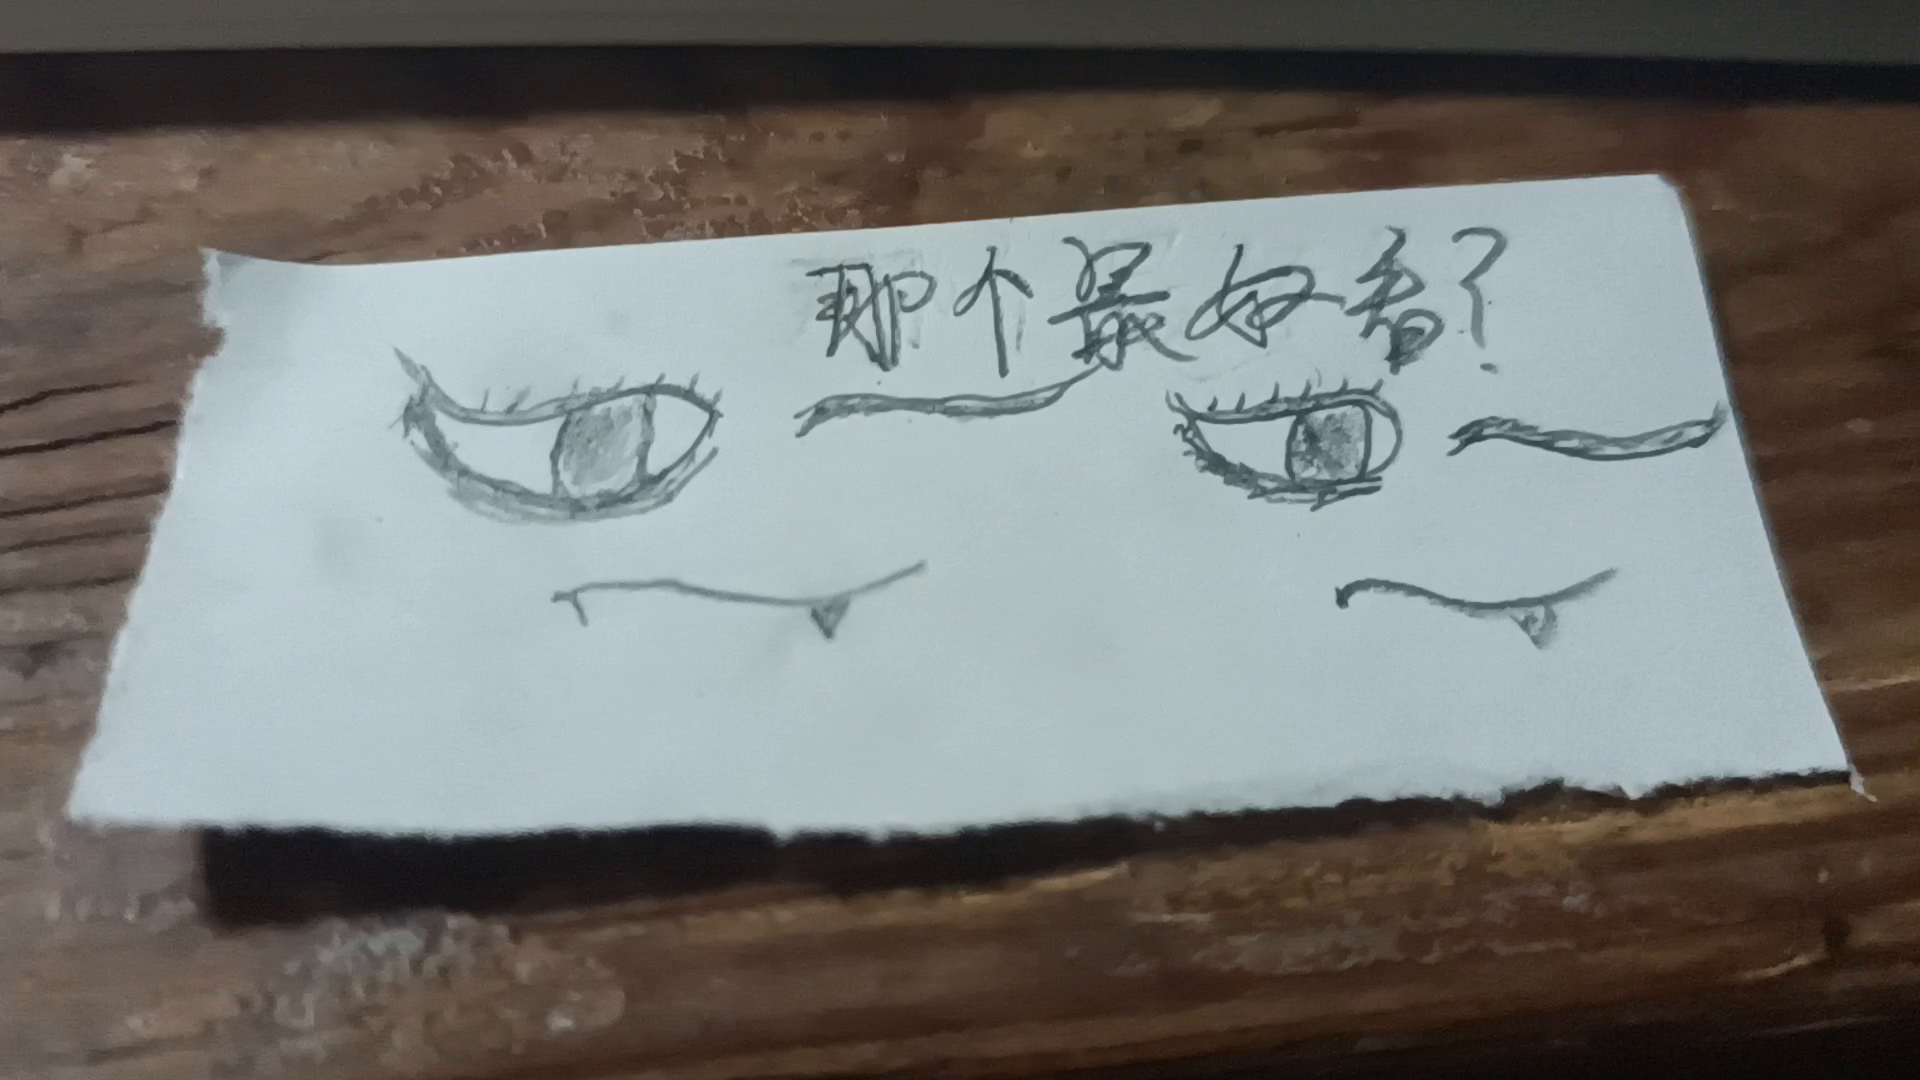 那个最好看?